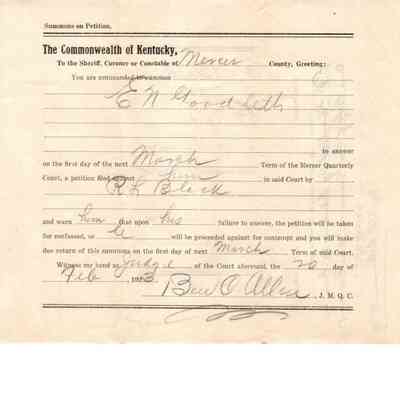 Summons on Petition.
The Commonwealth of Kentucky,
To the Sheriff, Coroner or Constable of Mercer County, Greeting:
You are commanded to summon
E N
to answer
on the first day of the next March Term of the Mercer Quarterly
Court, a petition filed against him in said Court by
R L Black
and warn him that upon his failure to answer, the petition will be taken
for confessed, or he will be proceeded against for contempt and you will make
due return of this summons on the first day of next March Term of said Court.
Witness my hand as Judge of the Court aforesaid, the 20 day of
Feb
Ben C Allen, J. M. Q. C.